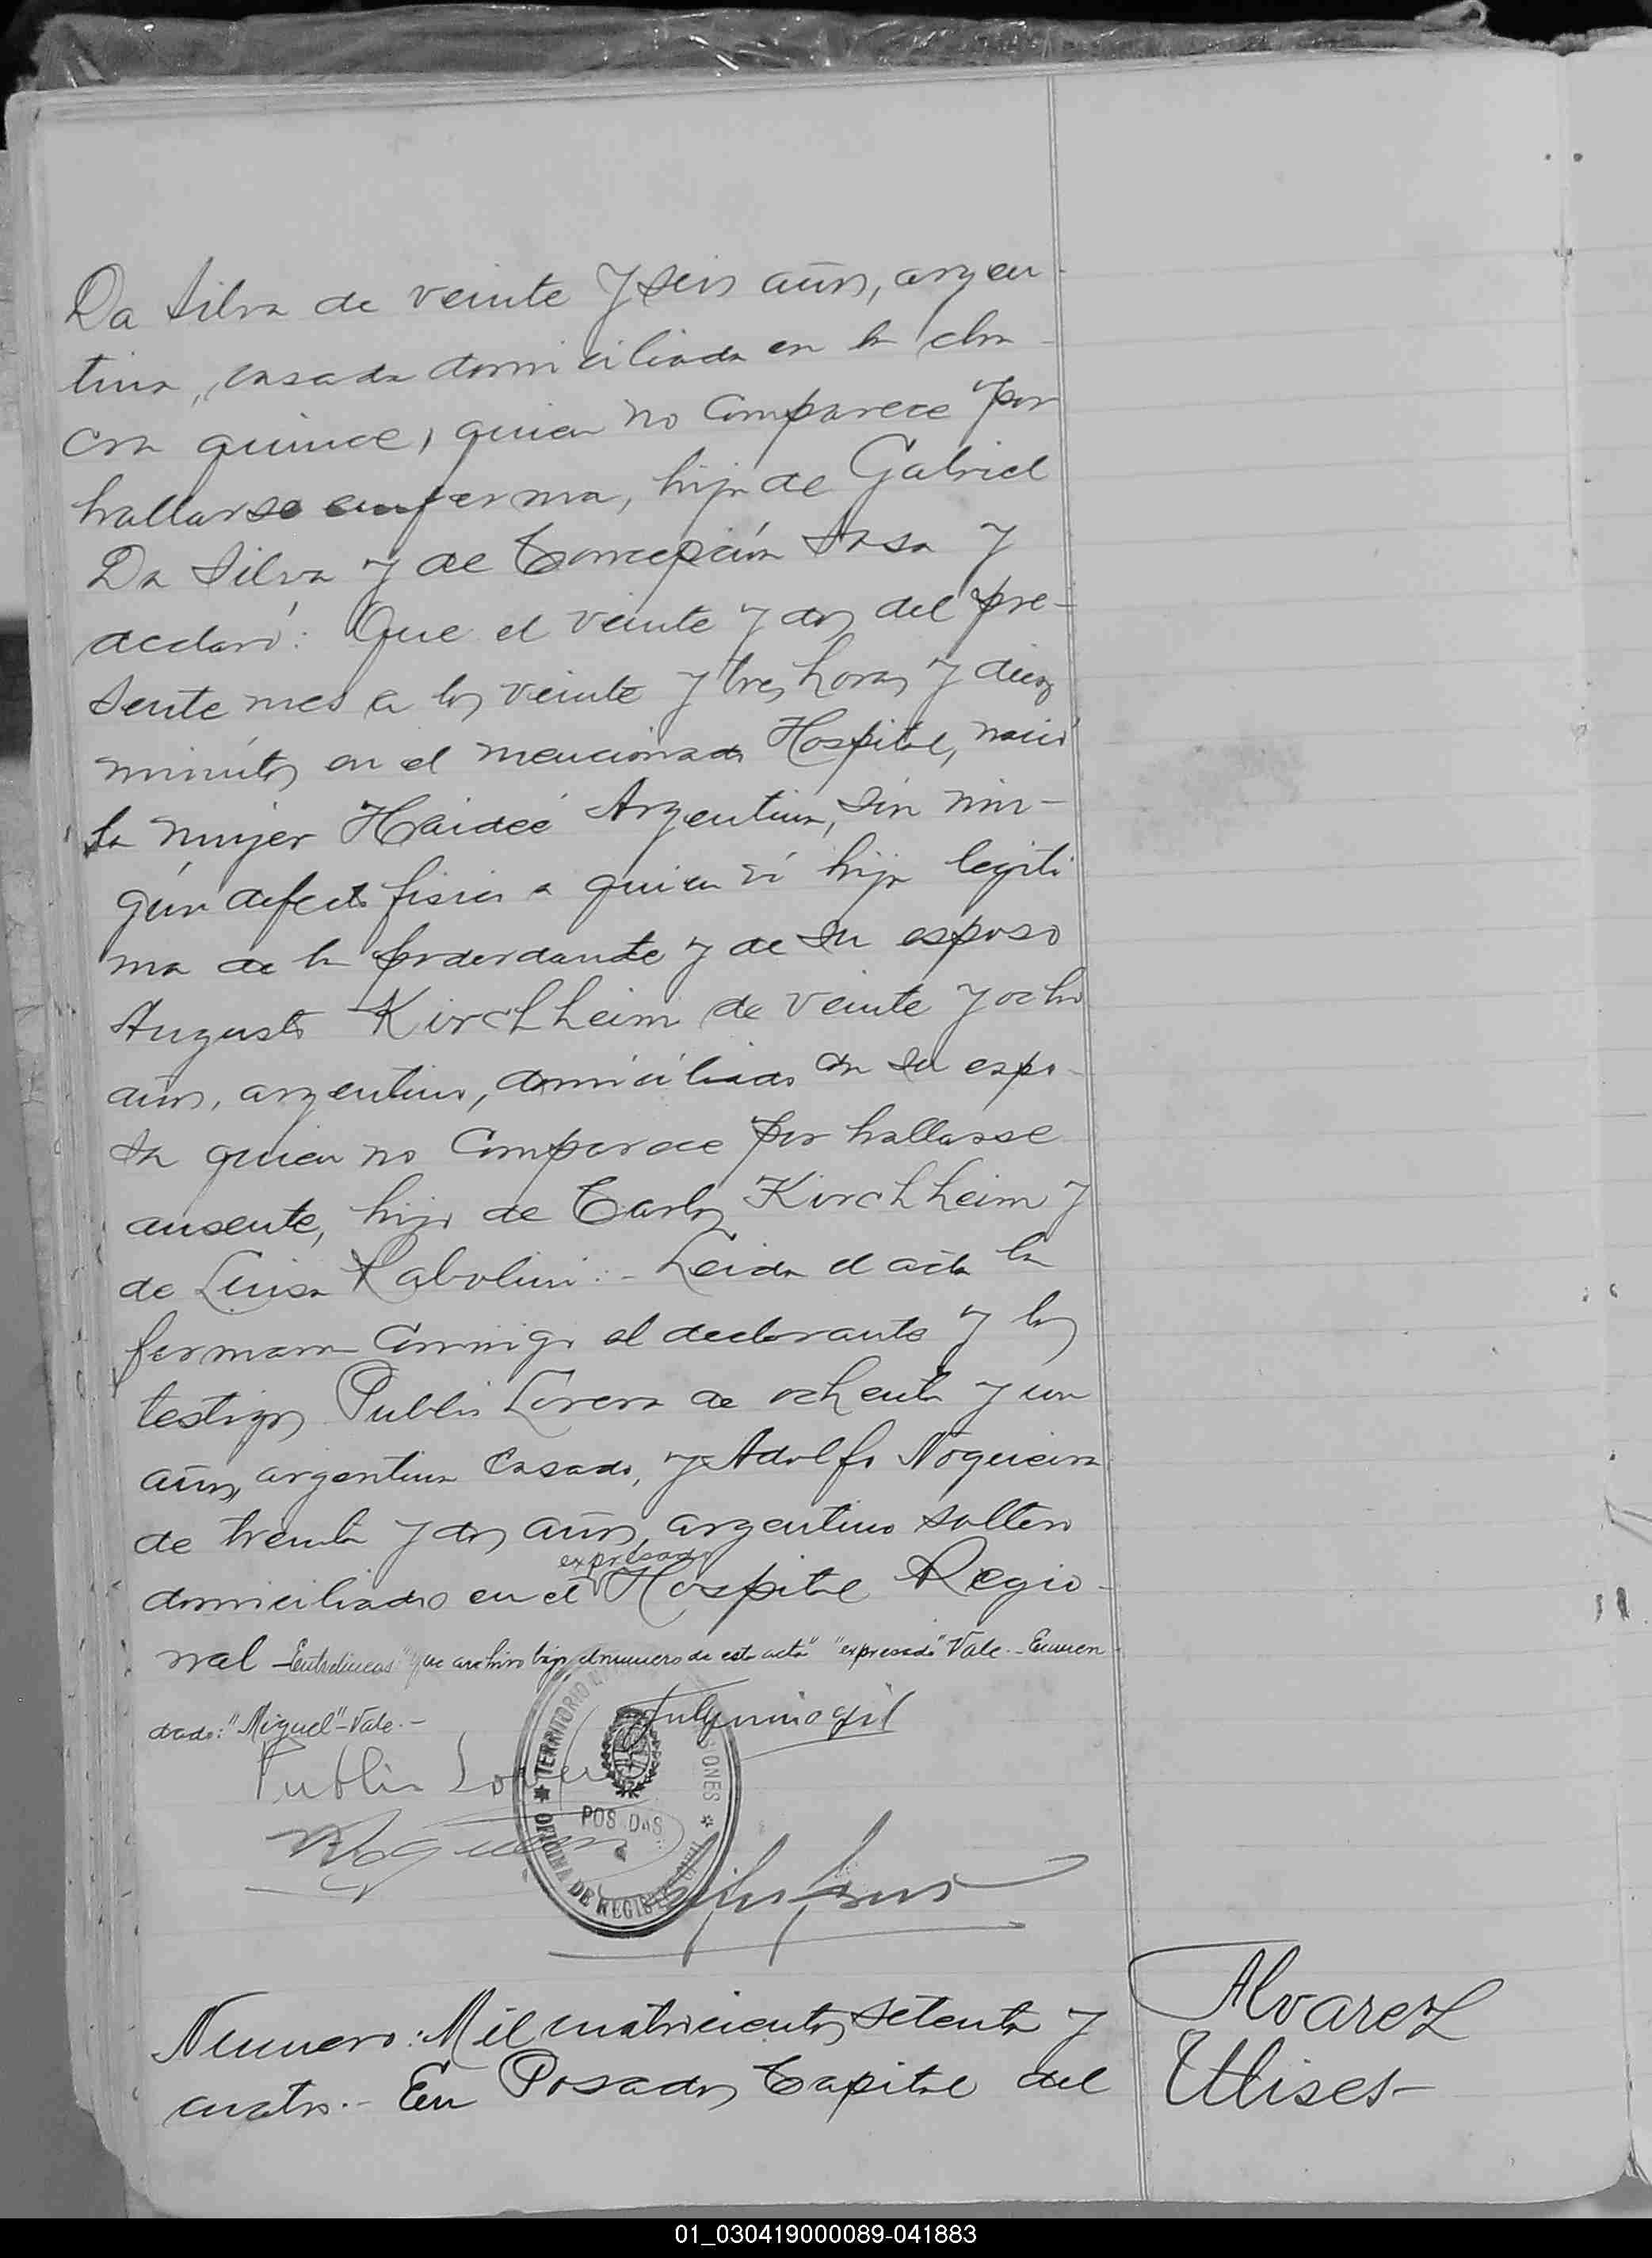 Da Silva de veinte y seis años, argen-
tina, casada domiciliada en la cha-
cra quince, quien no comparece por
hallarse enferma, hija de Gabriel
Da Silva y de Concepción Sasa y
declaró: Que el veinte y dos del pre-
sente mes a las veinte y tres horas y diez
minutos en el mencionado Hospital, nació
la mujer Haideé Argentina, sin nin-
gún defecto fisico a quien vi hija legiti
ma de la poderdante y de su esposo
Augusto Kirchheim de veinte y ocho
años, argentino, domiciliado con su espo-
sa quien no comparece por hallarse
ausente, hijo de Carlos Kirchheim y
de Luisa Rabolini:- Leida el acta la
firmaron conmigo el declarante y los
testigos Publio Lovera de ochenta y un
años, argentino casado, y Adolfo Nogueira
de treinta y dos años, argentino soltero
expresado
domiciliados en el Hospital Regio-
nal -Entrelineas "que archivo bajo el numero de esta acta" "expresado" Vale.- Enmen-
dado: "Miguel"-Vale.-
Publio Lovera
TERRITORIO
POSADAS
OFICINA DE REGISTRO
Numero: Mil cuatrocientos setenta y
cuatro.- En Posadas Capital del
Alvarez
Ulises-
01_030419000089-041883